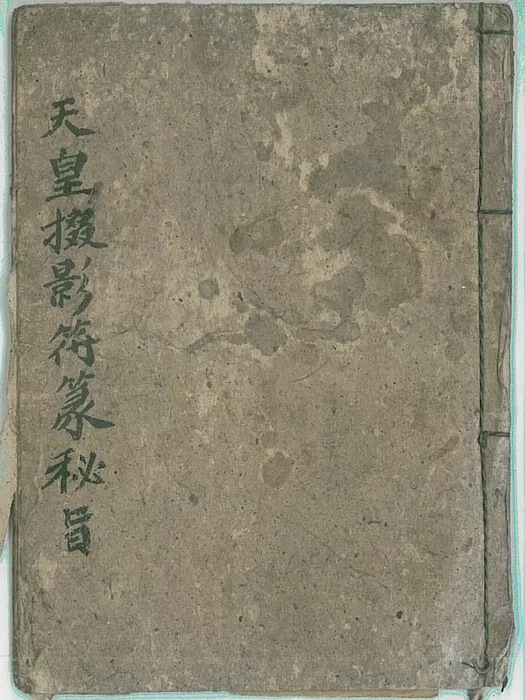 天皇掇影符篆秘旨